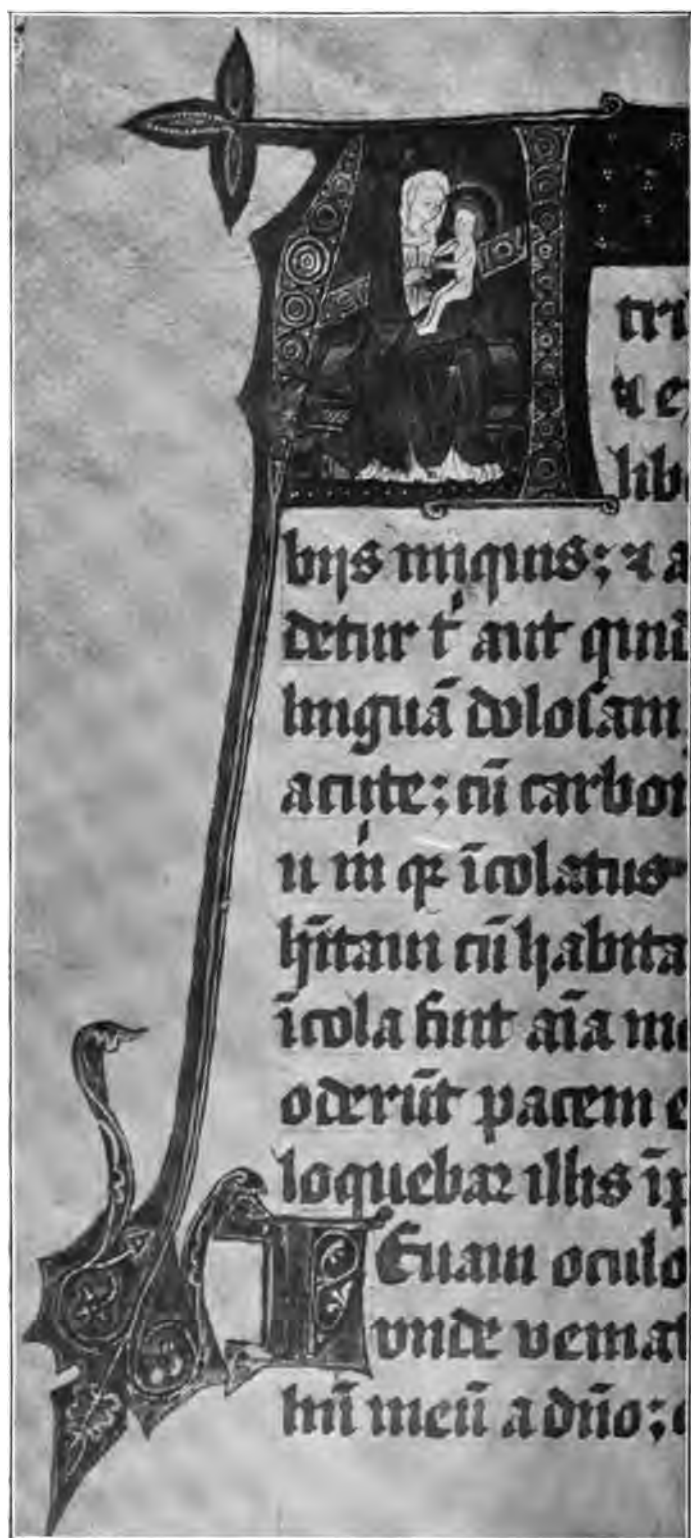 A
tri
⁊ e
lib
bijs iniquis; ⁊ a
detur t' aut quid
linguã dolosam
acute; cũ carbo
u m' qr ĩcolatus
hĩtaui cũ habita
ĩcola fuit aĩa m
oderũt pacem e
loquebar illis ĩp
L Euaui oculo
vnde venia
liũ meũ a dño;